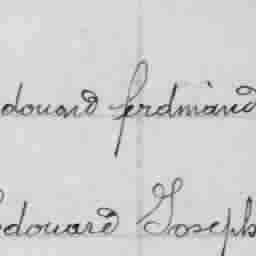 douard ferdinand
Edouard Joseph